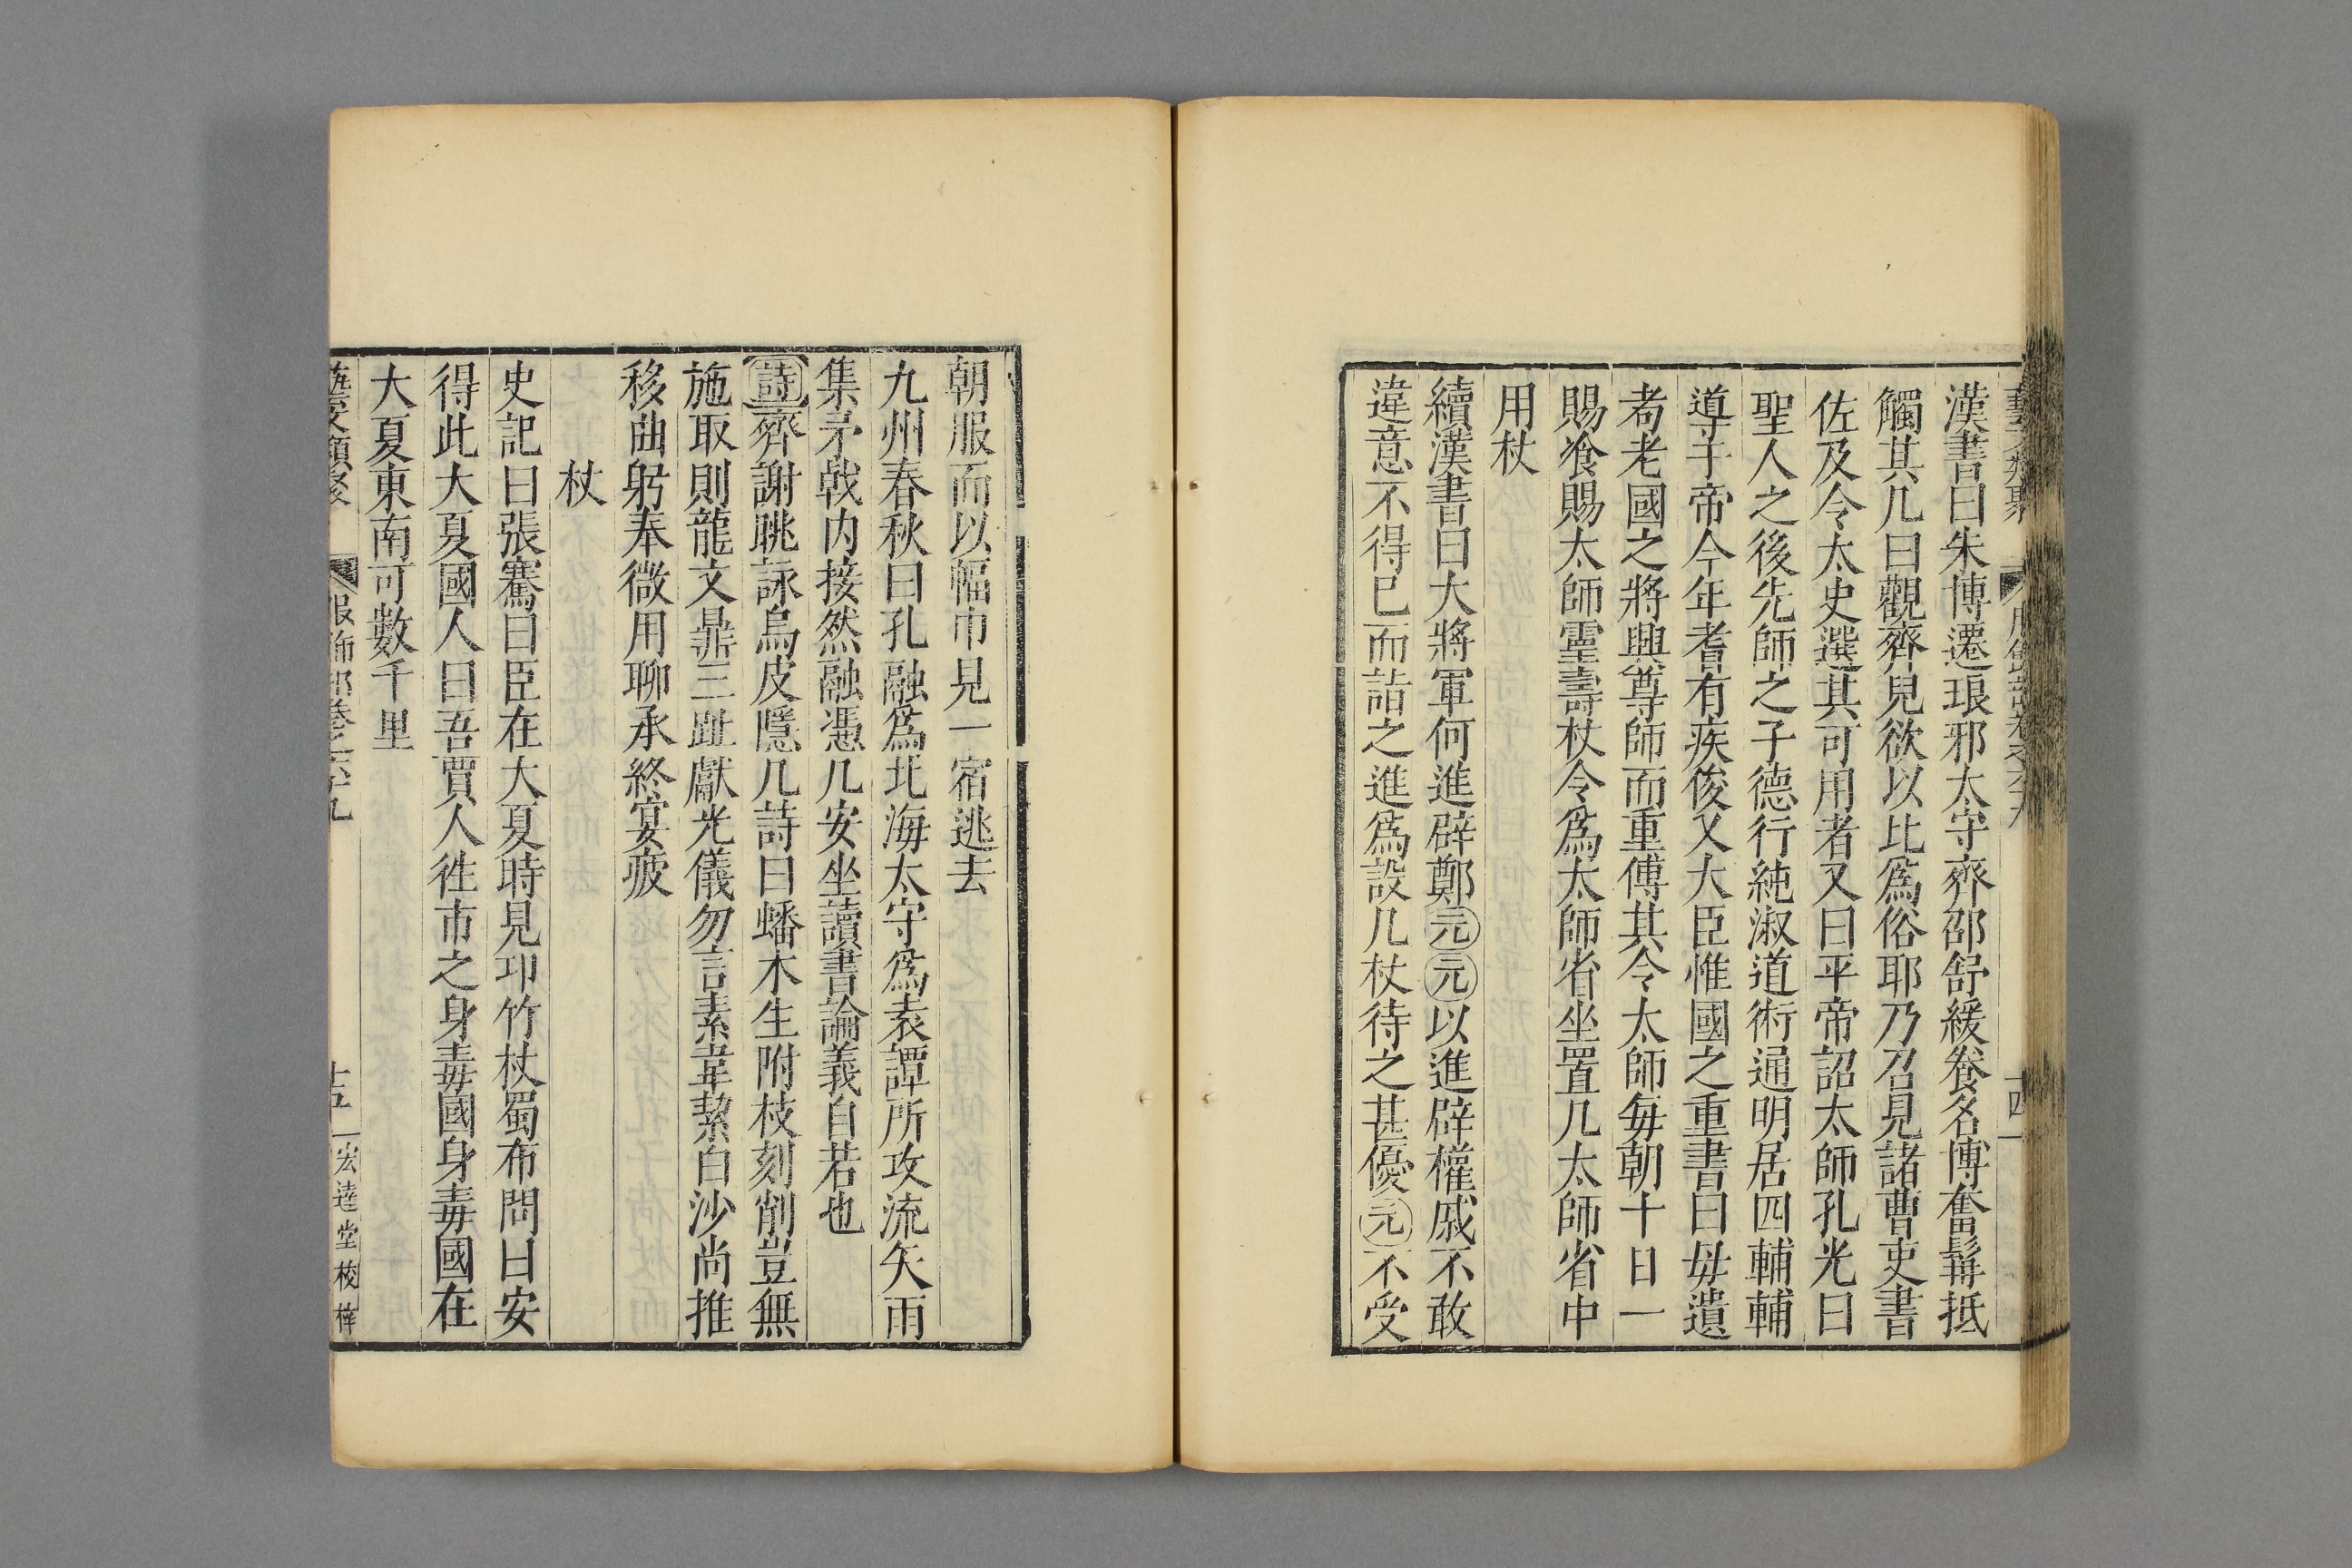 漢書曰朱博遷琅邪太守齊部舒緩養名博奮髯抵
觸其几曰觀齊兒欲以此爲俗耶乃召見諸曹吏書
佐及令太史選其可用者又曰平帝詔太師孔光曰
聖人之後先師之子德行純淑道術通明居四輔輔
導于帝今年耆有疾俊乂大臣惟國之重書曰毋遺
耇老國之將興尊師而重傅其令太師毎朝十日一
賜飡賜太師靈壽杖令爲太師省坐置几太師省中
用杖
續漢書曰大將軍何進辟鄭元元以進辟權戚不敢
違意不得已而詣之進爲設几杖待之甚優元不受
朝服而以幅巾見一宿逃去
九州春秋曰孔融爲北海太守爲袁譚所攻流矢雨
集矛戟内接然融憑几安坐讀書論義自若也
詩齊謝眺詠烏皮隱几詩曰蟠木生附枝刻削豈無
施取則龍文鼎三趾獻光儀勿言素韋絜白沙尚推
移曲躬奉微用聊承終宴疲
杖
史記曰張騫曰臣在大夏時見卭竹杖蜀布問曰安
得此大夏國人曰吾賈人徃市之身毒國身毒國在
大夏東南可數千里
藝文類聚 服飾部卷之六十九 十五 宏達堂校梓